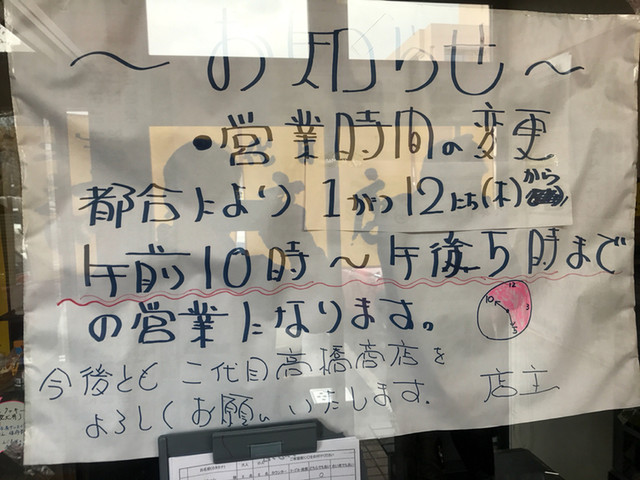 ～お知らせ～
・営業時間の変更
都合により1がつ12にち(木)から
午前10時～午後5時まで
の営業になります。
12
10
3
5
今後とも二代目高橋商店を
よろしくお願いいたします.
店主